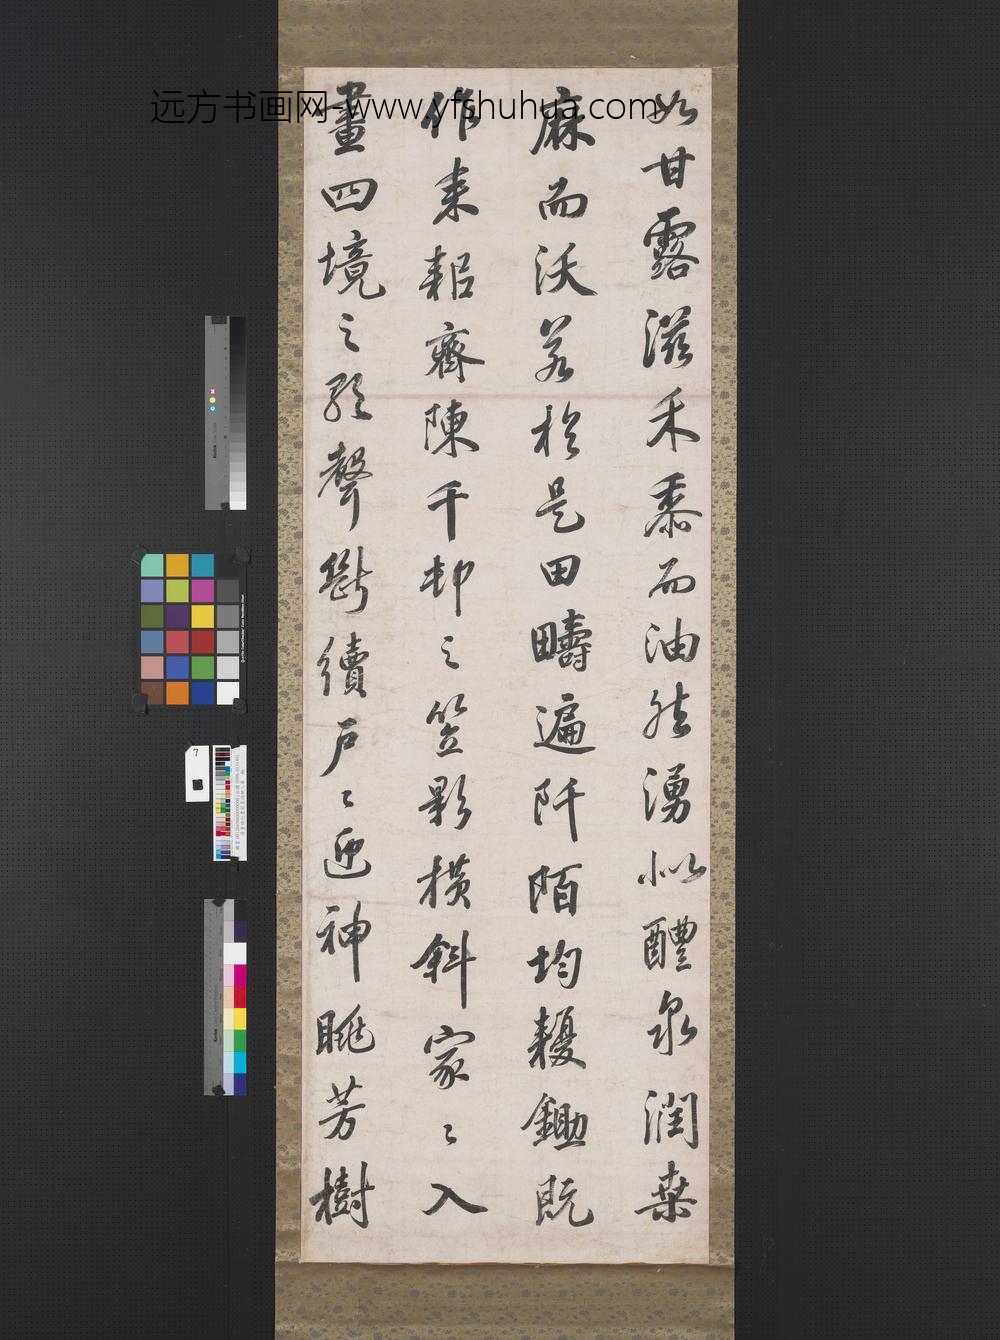 远方书画网-www.yfshuhua.com
如甘露滋禾黍而油然湧似醴泉潤桑
麻而沃若於是田疇遍阡陌均耰鋤既
作耒耜齊陳千邨之笠影橫斜家〻入
畫四境之歌聲斷續戶〻迎神眺芳樹
7